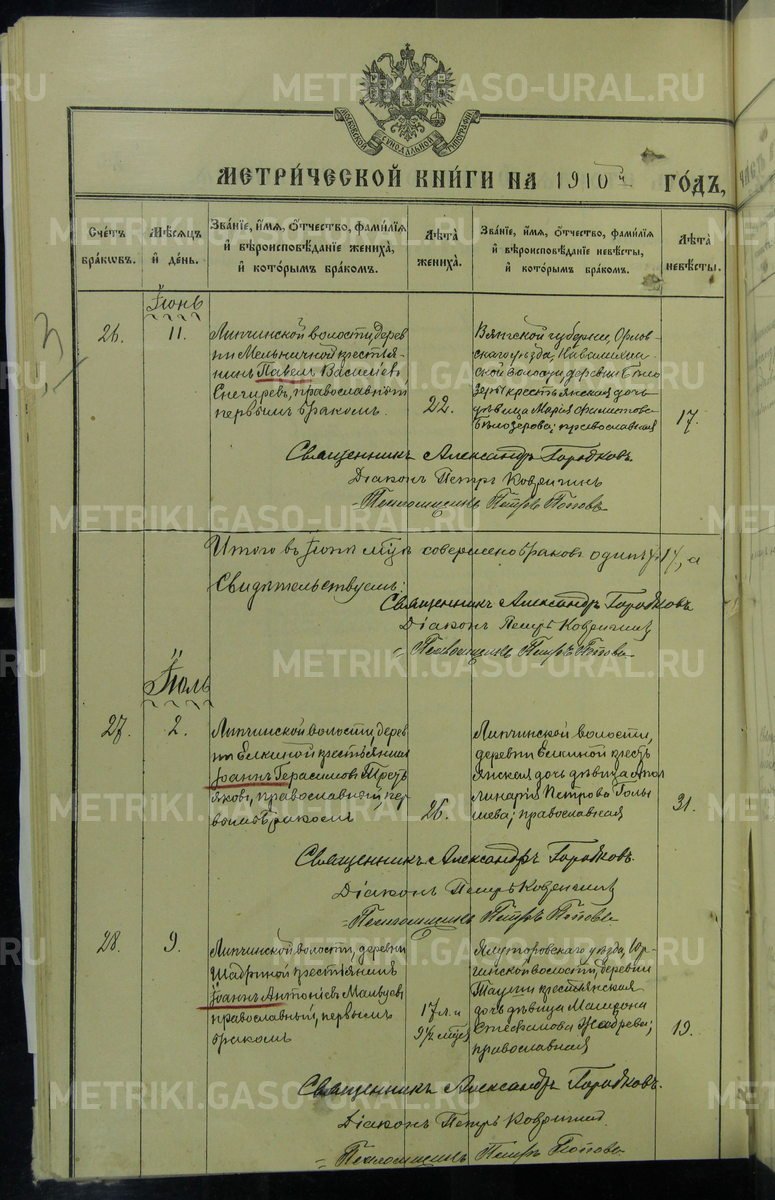 МОСКОВСКОЙ СУНОДАЛЬНОЙ ТИПОГРАФІИ
МЕТРИ́ЧЕСКОЙ КНИ́ГИ НА 1910й ГО́ДЪ,
Сче́тъ бра́ковъ.
Мѣ́сяцъ и҆ де́нь.
Зва́ніе, и҆́мя, ѻ҆́тчество, фами́лія и҆ вѣроисповѣ́даніе жениха̀, и҆ кото́рымъ бра́комъ.
Лѣ́та жениха̀.
Зва́ніе, и҆́мя, ѻ҆́тчество, фами́лія и҆ вѣроисповѣ́даніе невѣ́сты, и҆ кото́рымъ бра́комъ.
Лѣ́та невѣ́сты.
3
Іюнь
26.
11.
Липчинской волости, дерев
ни Мельничной крестья-
нинъ Павелъ Василіевъ
Снегиревъ, православный
первымъ бракомъ.
22.
Вятской губерніи, Орлов-
скаго уѣзда,
ской волости, деревни Бѣло
зеры крестьянская дочь
дѣвица Марія Филиппова
Бѣлозерова; православная
17.
Священникъ Александръ Городковъ.
Діаконъ Петръ Ковригинъ
Псаломщикъ Петръ Поповъ
Итого въ Іюнѣ мѣцѣ совершено браковъ одинъ /:1:/, а
Свидѣтельствуемъ:
Священникъ Александръ Городковъ
Діаконъ Петръ Ковригинъ
Псаломщикъ Петръ Поповъ
Іюль
27.
2.
Липчинской волости, дерев
ни Елкиной крестьянинъ
Іоаннъ Герасимовъ Треть
яковъ, православный, пер
вымъ бракомъ
26.
Липчинской волости,
деревни Елкиной кресть
янская дочь дѣвица Апол
линарія Петрова Голы
шева; православная
31.
Священникъ Александръ Городковъ.
Діаконъ Петръ Ковригинъ
Псаломщикъ Петръ Поповъ
28.
9.
Липчинской волости, деревни
Шадриной крестьянинъ
Іоаннъ Антоніевъ Мальцевъ
православный, первымъ
бракомъ
17 л. и
9½ мѣц
Ялуторовскаго уѣзда, Юр-
гинской волости, деревни
крестьянская
дочь дѣвица
Стефанова
православная
19.
Священникъ Александръ Городковъ.
Діаконъ Петръ Ковригинъ.
Псаломщикъ Петръ Поповъ
METRIKI.GASO-URAL.RU